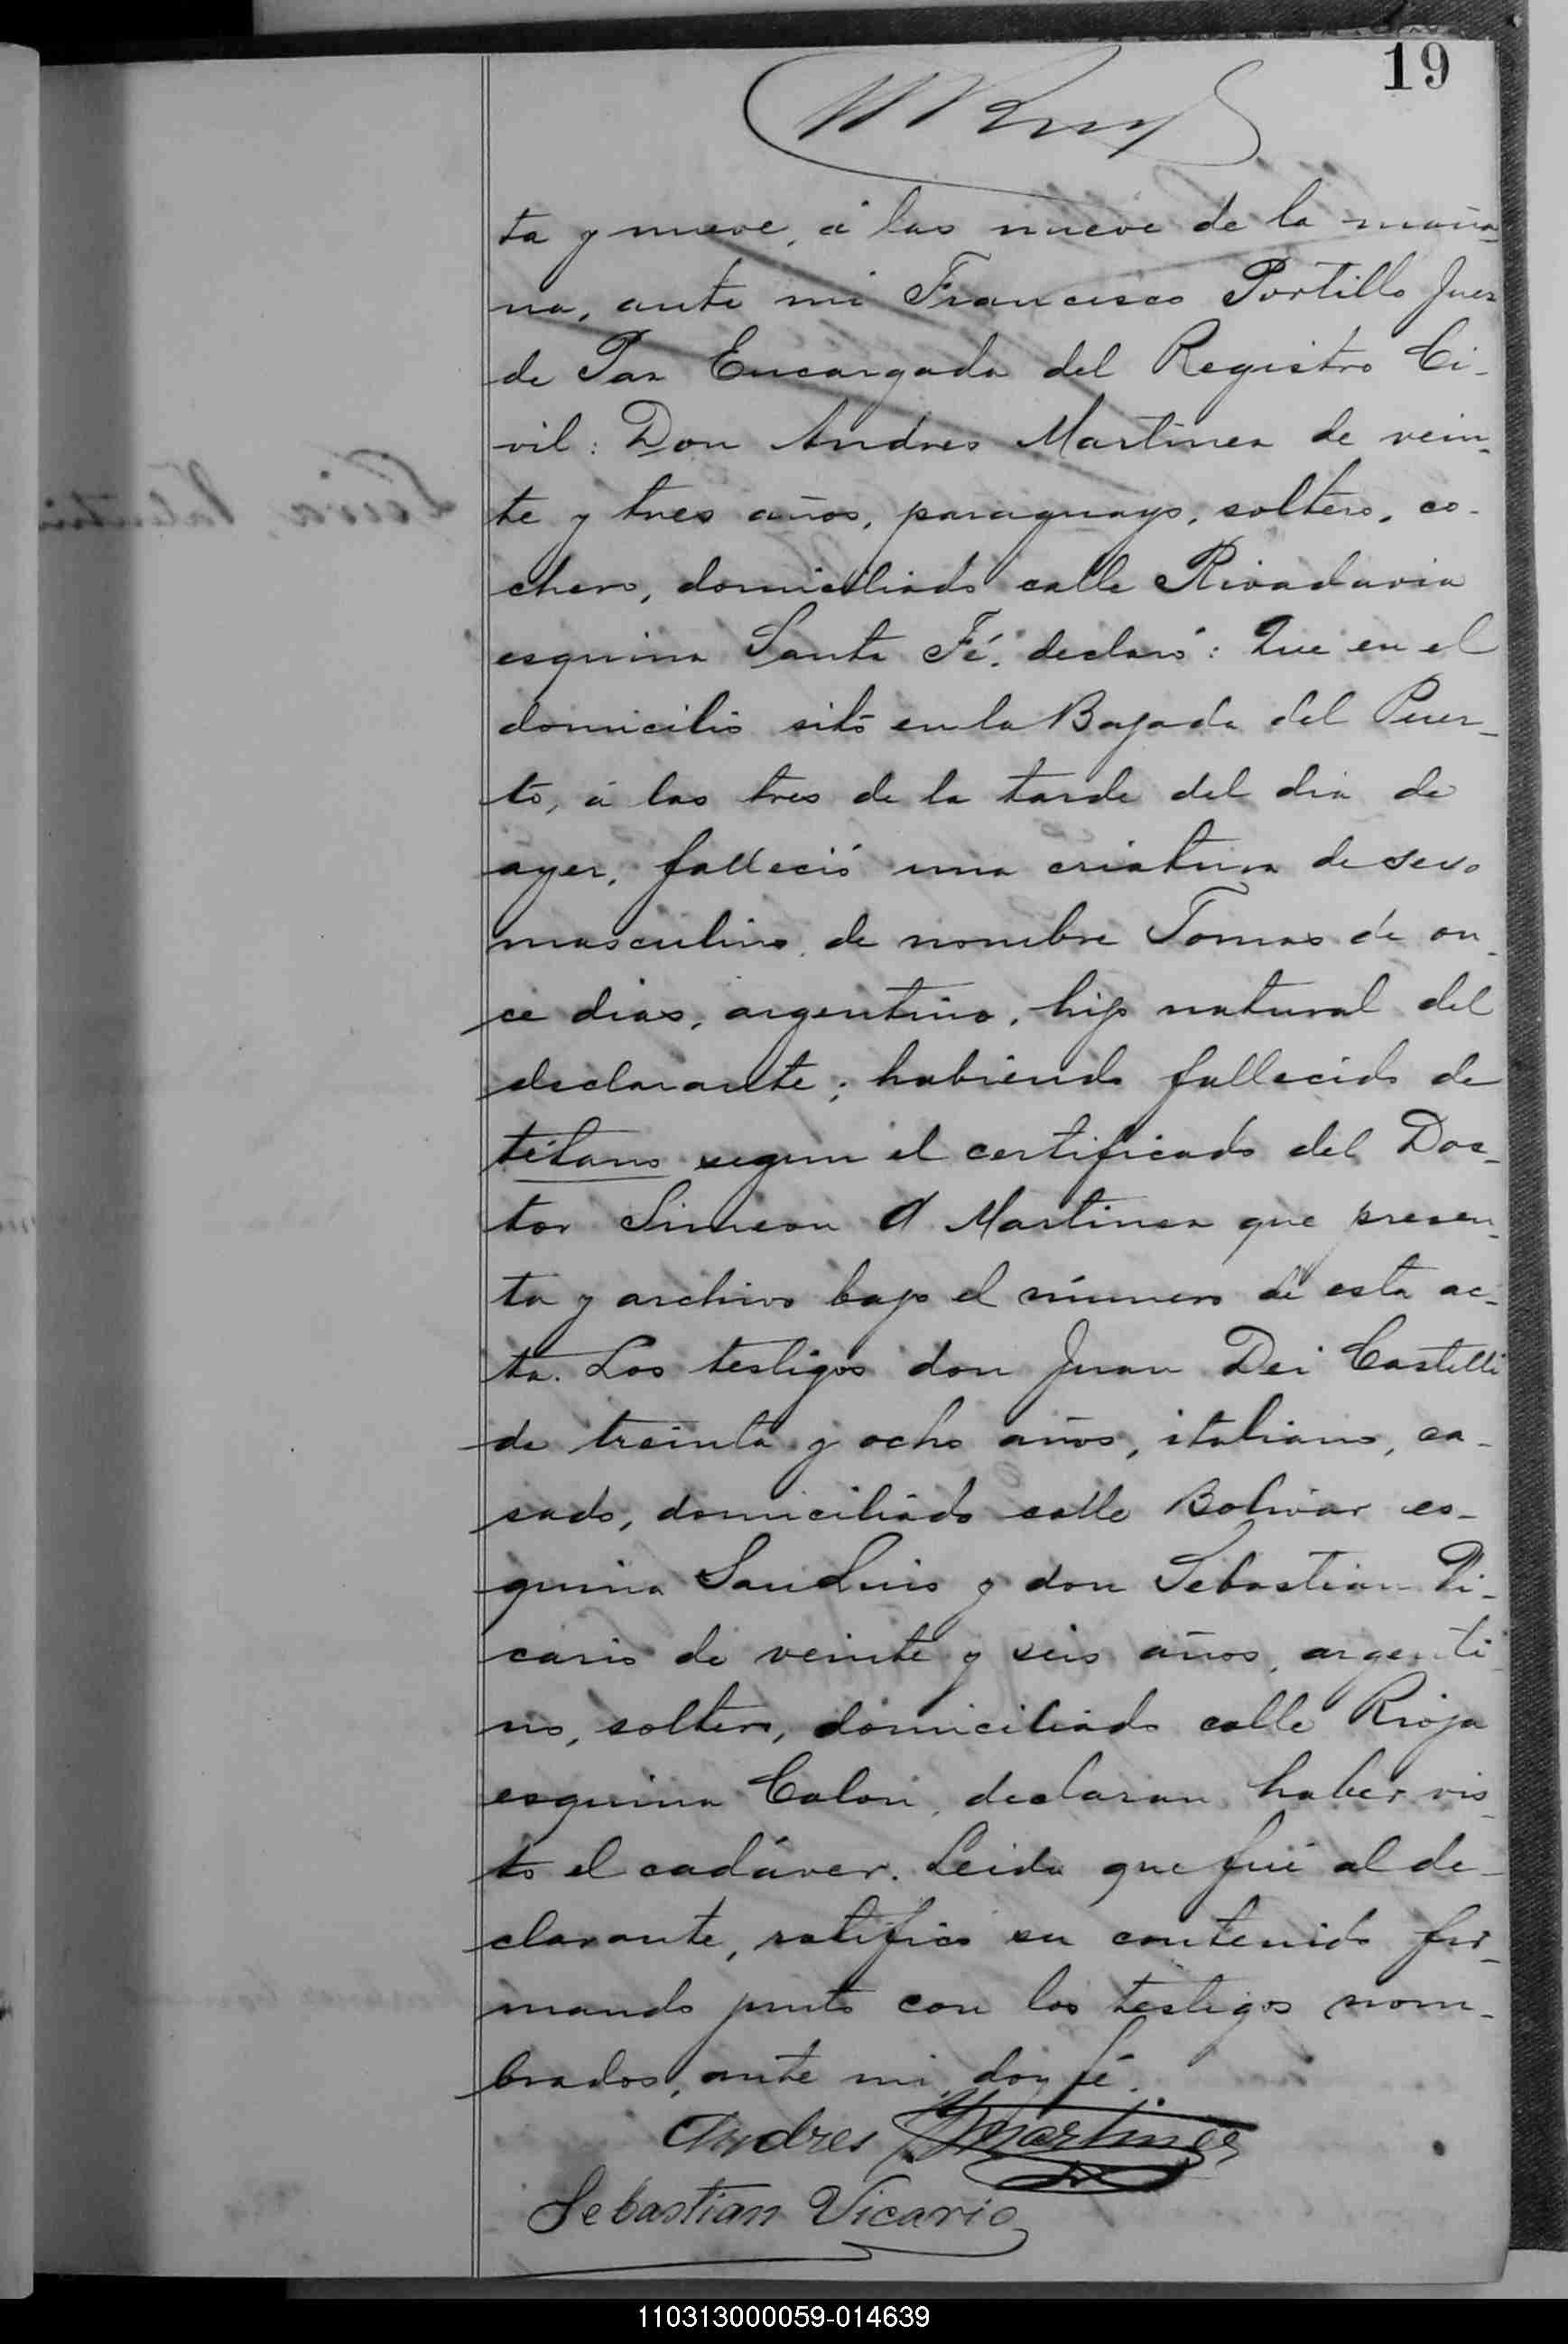 19
ta y nueve, á las nueve de la maña-
na, ante mi Francisco Portillo Juez
de Paz Encargado del Registro Ci-
vil: Don Andres Martinez de vein-
te y tres años, paraguayo, soltero, co-
chero, domiciliado calle Rivadavia
esquina Santa Fé, declaró: Que en el
domicilio sitó en la Bajada del Puer-
to, á las tres de la tarde del dia de
ayer, falleció una criatura de sexo
masculino, de nombre Tomas de on-
ce dias, argentino, hijo natural del
declarante; habiendo fallecido de
tétano segun el certificado del Doc-
tor Simeon A Martinez que presen-
ta y archivo bajo el número de esta ac-
ta. Los testigos don Juan Dei Castelli
de treinta y ocho años, italiano, ca-
sado, domiciliado calle Bolivar es-
quina San Luis y don Sebastian Vi-
cario de veinte y seis años, argenti-
no, soltero, domiciliado calle Rioja
esquina Colon, declaran haber vis-
to el cadáver. Leida que fué al de-
clarante, ratificó su contenido fir-
mando junto con los testigos nom-
brados, ante mi, doy fé.
Andres Martinez
Sebastian Vicario
110313000059-014639